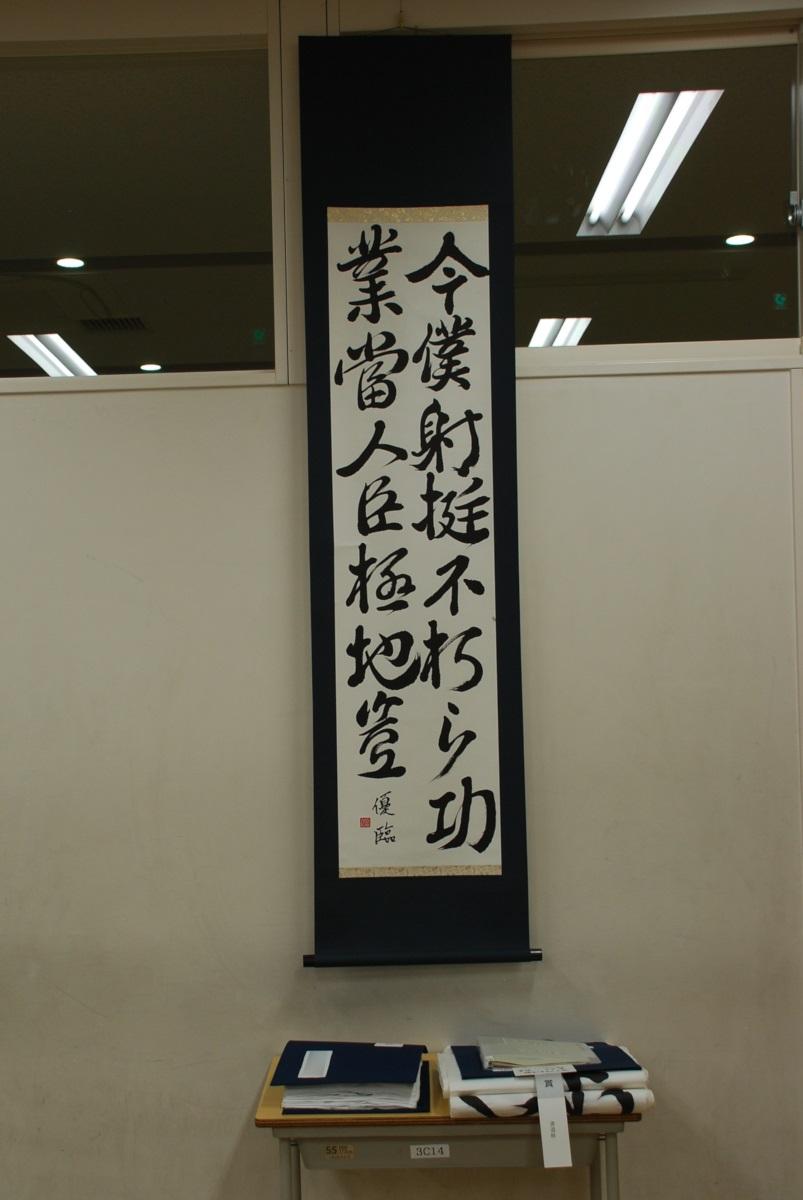 今僕射挺不朽之功
業當人臣極地豈
優臨
賞
55
3C14